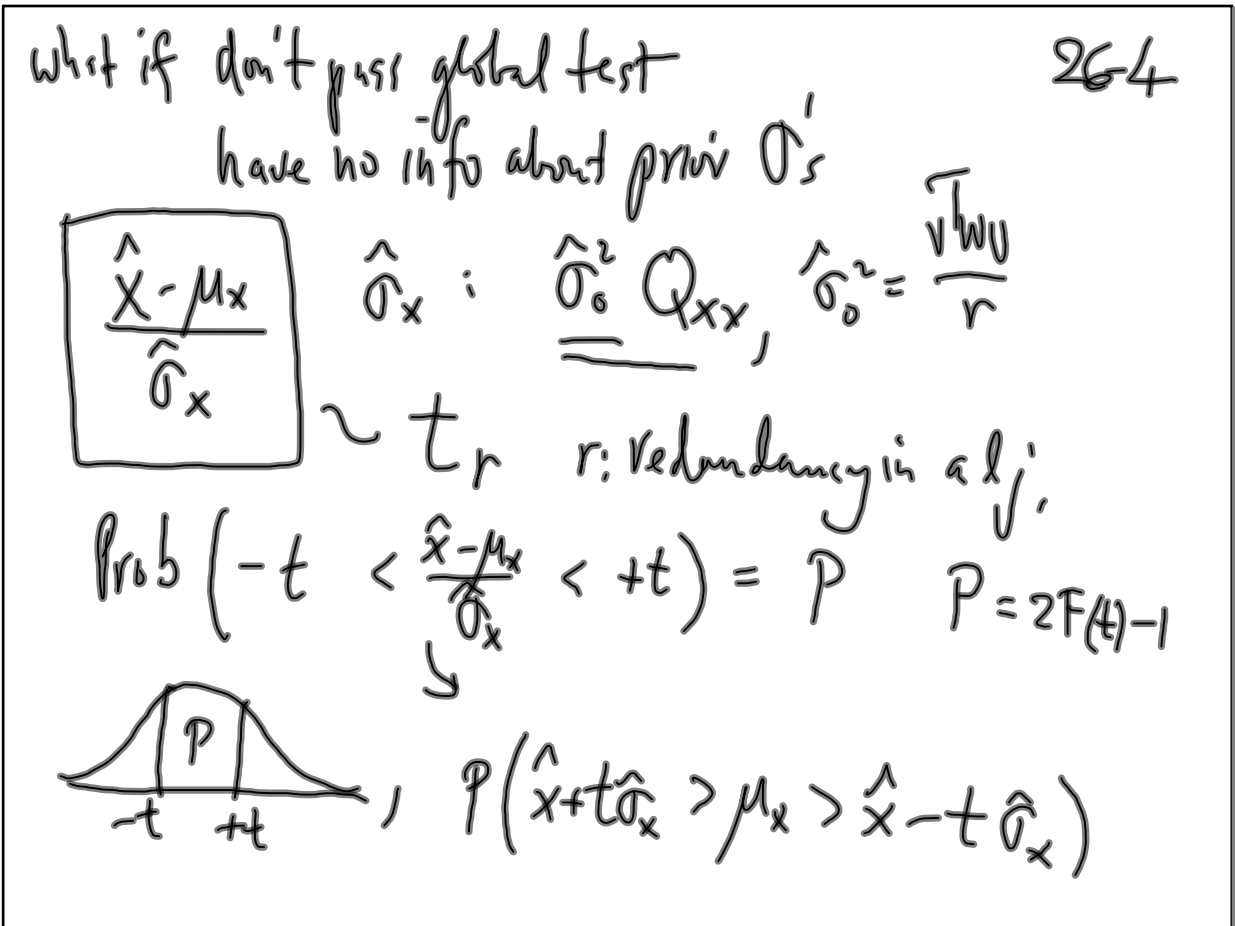 what if don't pass global test 26-4
have no info about prior σ's
(x̂ - μₓ) / σ̂ₓ   σ̂ₓ : σ̂₀² Qₓₓ, σ̂₀² = vᵀWv / r
~ t_r   r: redundancy in adj.
Prob(-t < (x̂ - μₓ) / σ̂ₓ < +t) = P   P = 2F(t)-1
P
-t +t , P(x̂ + tσ̂ₓ > μₓ > x̂ - tσ̂ₓ)